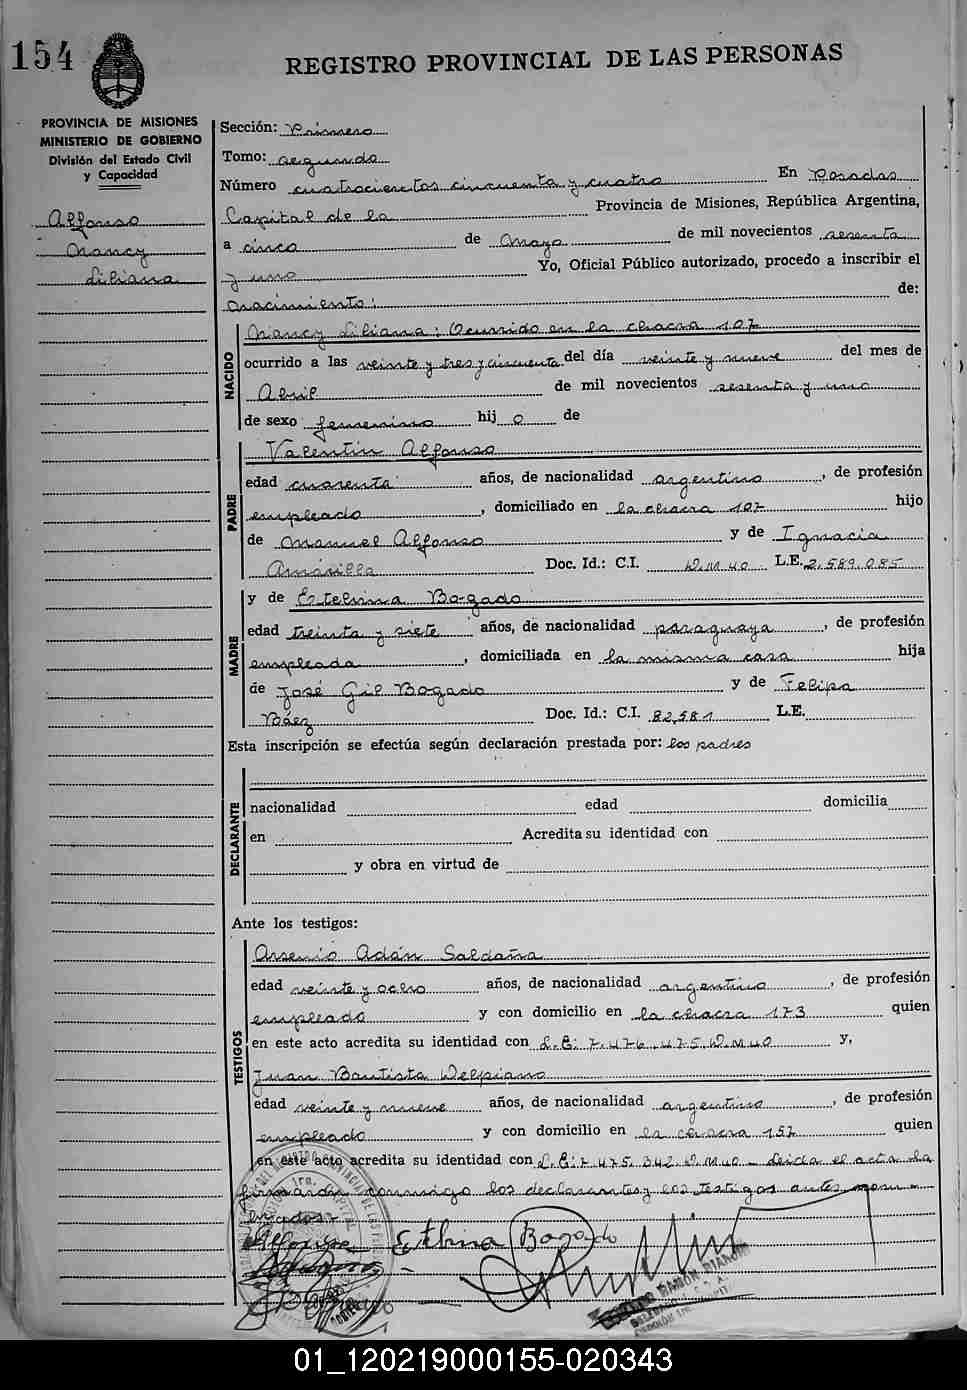 154
REGISTRO PROVINCIAL DE LAS PERSONAS
PROVINCIA DE MISIONES
MINISTERIO DE GOBIERNO
División del Estado Civil
y Capacidad
Alfonso
Nancy
Liliana
Sección: Primero
Tomo: segundo
Número cuatrocientos cincuenta y cuatro En Posadas
Capital de la Provincia de Misiones, República Argentina,
a cinco de Mayo de mil novecientos sesenta
y uno Yo, Oficial Público autorizado, procedo a inscribir el
nacimiento: de:
NACIDO
Nancy Liliana: Ocurrido en la chacra 107
ocurrido a las veinte y tres y cincuenta del día veinte y nueve del mes de
Abril de mil novecientos sesenta y uno
de sexo femenino hij o de
PADRE
Valentin Alfonso
edad cuarenta años, de nacionalidad argentino, de profesión
empleado, domiciliado en la chacra 107 hijo
de Manuel Alfonso y de Ignacia
Amarilla Doc. Id.: C.I. D.M. 40 L.E. 2.589.085
MADRE
y de Estelvina Bogado
edad treinta y siete años, de nacionalidad paraguaya, de profesión
empleada, domiciliada en la misma casa hija
de José Gil Bogado y de Felipa
Báez Doc. Id.: C.I. 82.581 L.E.
Esta inscripción se efectúa según declaración prestada por: los padres
DECLARANTE
nacionalidad edad domicilia
en Acredita su identidad con
y obra en virtud de
Ante los testigos:
TESTIGOS
Arsenio Adán Saldaña
edad veinte y ocho años, de nacionalidad argentino, de profesión
empleado y con domicilio en la chacra 173 quien
en este acto acredita su identidad con L.E: 7.476.475.D.M40 y,
Juan Bautista Delpiano
edad veinte y nueve años, de nacionalidad argentino, de profesión
empleado y con domicilio en la chacra 157 quien
en este acto acredita su identidad con L.E: 7.475.342.D.M40 - Leida el acta la
firmarán conmigo los declarantes y los testigos antes nom-
brados:
Estelvina Bogado
01_120219000155-020343